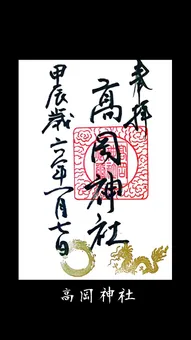 奉拝
高岡神社
甲辰歳 六年一月七日
高岡神社